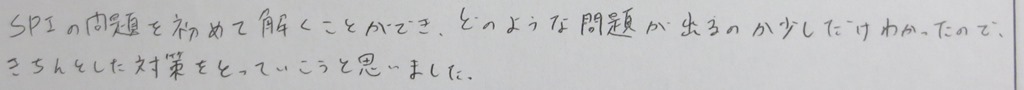 SPIの問題を初めて解くことができ、どのような問題が出るのか少しだけわかったので、
きちんとした対策をとっていこうと思いました。